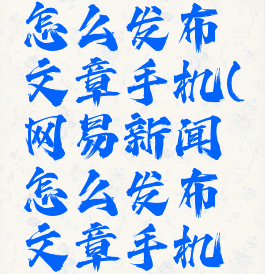 怎么发布
文章手机(
网易新闻
怎么发布
文章手机